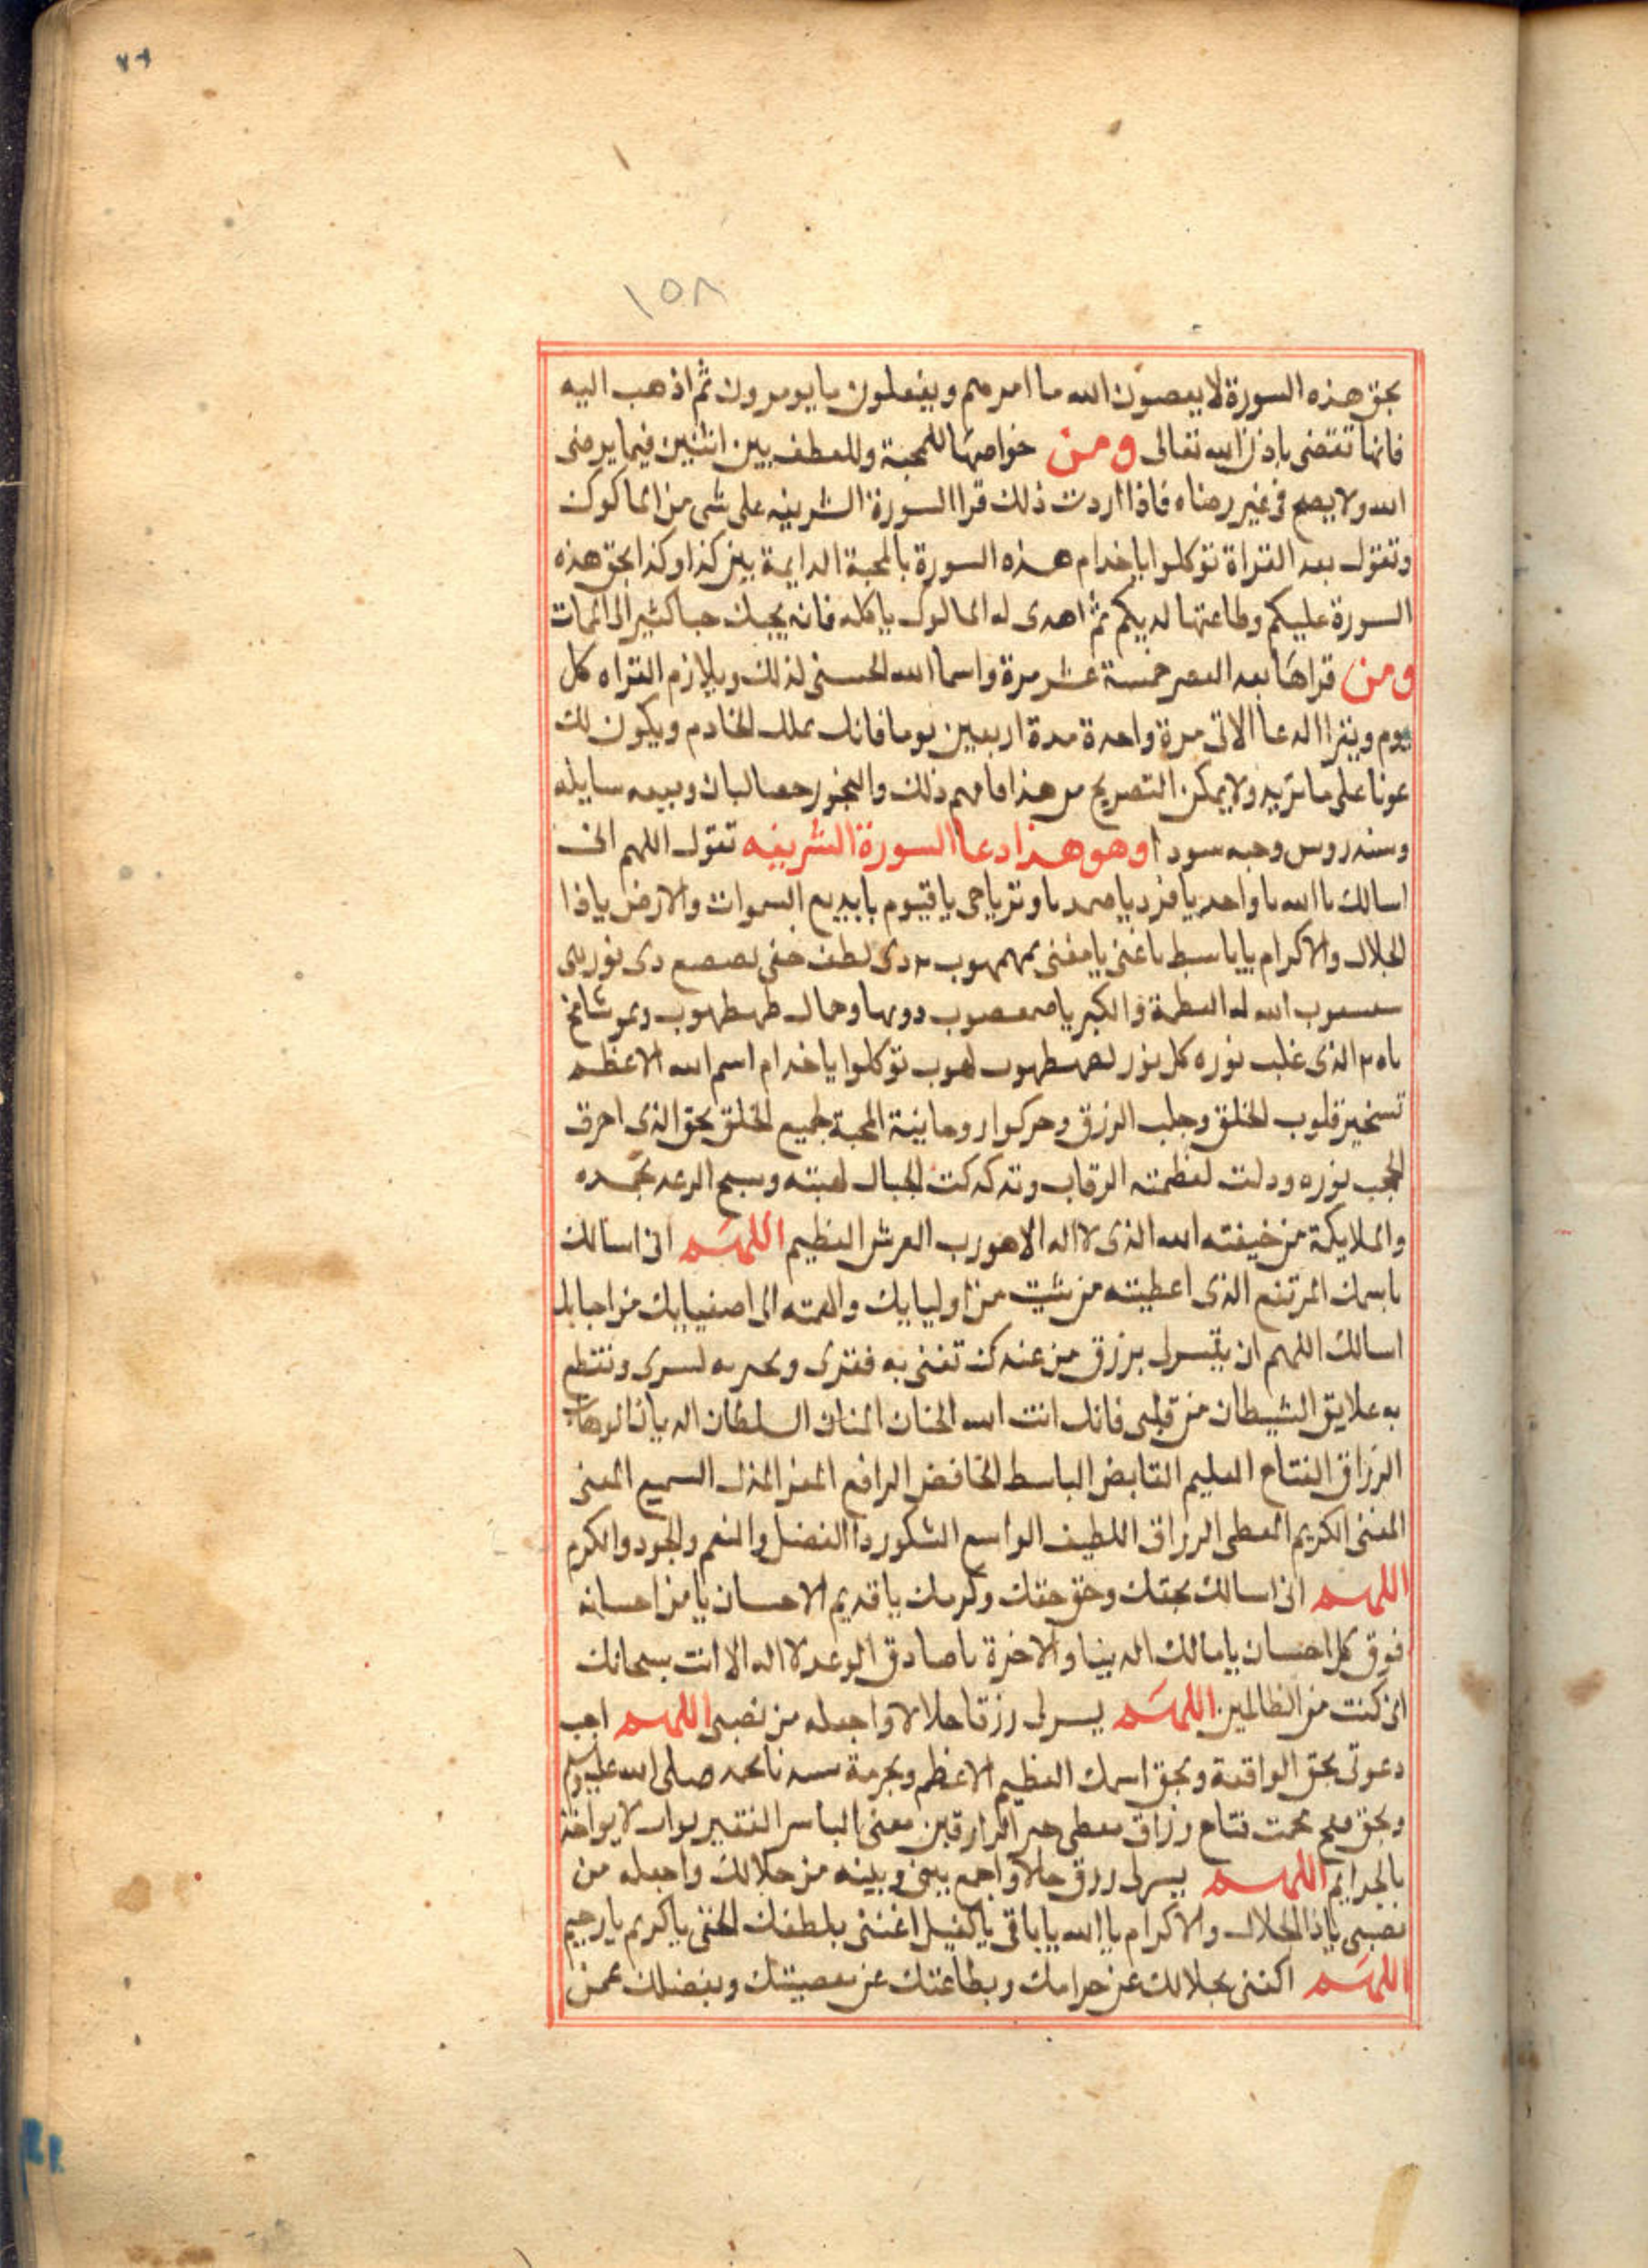 ١٥٨
بحق هذه السورة لا يعصون الله ما امرهم ويفعلون ما يومرون ثم اذهب اليه
فانها تقتضى باذن الله تعالى ومن خواصها للمحبة وللعطف بين اثنين فيما يرضى
الله ولا يصح فى غير رضاه فاذا اردت ذلك قرا السورة الشريفه على شى من الماكول
وتقول بعد القراة توكلوا يا خدام هذه السورة بالمحبة الدايمة بين كذا وكذا بحق هذه
السورة عليكم وطاعتها لديكم ثم اهدى له المالوك ياكله فانه يحبك حبا كثير الى الممات
ومن قراها بعد العصر خمسة عشر مرة واسما الله الحسنى لذلك ويلازم القراه كل
يوم ويقرا الدعا الاتى مرة واحدة مدة اربعين يوما فانك تملك الخادم ويكون لك
عونا على ما تريد ولا يمكن التصريح من هذا فافهم ذلك والبخور حصالبان وميعه سايله
وسندروس وحبه سودا وهو هذا دعا السورة الشريفه تقول اللهم انى
اسالك يا الله يا واحد يا فرد يا صمد يا وتر يا حى يا قيوم يا بديع السموات والارض يا ذا
الجلال والاكرام يا باسط يا غنى يا مغنى بمهمهوب دى لطف خفى بصعصع دى نور بهى
الله له العظمة والكبريا طهطهوب
الذى غلب نوره كل نور لهوب توكلوا يا خدام اسم الله الاعظم
تسخير قلوب الخلق وجلب الرزق وحركوا روحانية المحبة لجميع الخلق بحق الذى احرق
الحجب نوره ودلت لعظمته الرقاب وتدكدكت الجبال لهيبته وسبح الرعد بحمده
والملايكة من خيفته الله الذى لا اله الا هو رب العرش العظيم اللهم انى اسالك
باسمك المرتفع الذى اعطيته من شيت من اوليايك والهمته الى اصفيايك من احبابك
اسالك اللهم ان تيسر لى برزق من عندك تغنى به فقرى وتجبر به كسرى وتقطع
به علايق الشيطان من قلبى فانك انت الله الحنان المنان السلطان الديان الوهاب
الرزاق الفتاح العليم القابض الباسط الخافض الرافع المعز المذل السميع المغنى
المغنى الكريم المعطى الرزاق اللطيف الواسع الشكور دا الفضل والنعم والجود والكرم
اللهم انى اسالك بحقك وحق حقك وكرمك يا قديم الاحسان يا من احسانه
فوق كل احسان يا مالك الدينا والاخرة يا صادق الوعد لا اله الا انت سبحانك
انى كنت من الظالمين اللهم يسر لى رزقا حلالا واجعله من نصيبى اللهم اجب
دعوتى بحق الواقعة وبحق اسمك العظيم الاعظم وبحرمة سيدنا محمد صلى الله عليه وسلم
وبحق فقج مخمت فتاح رزاق معطى خير الرازقين مغنى الباس الفقير تواب لا يواخذ
بالجرايم اللهم يسر لى رزق حلالا واجمع بينى وبينه من حلالك واجعله من
نصيبى يا ذا الجلال والاكرام يا الله يا باقى يا كفيل اغننى بلطفك الخفى يا كريم يا رحيم
اللهم اكفنى بحلالك عن حرامك وبطاعتك عن معصيتك وبفضلك عمن